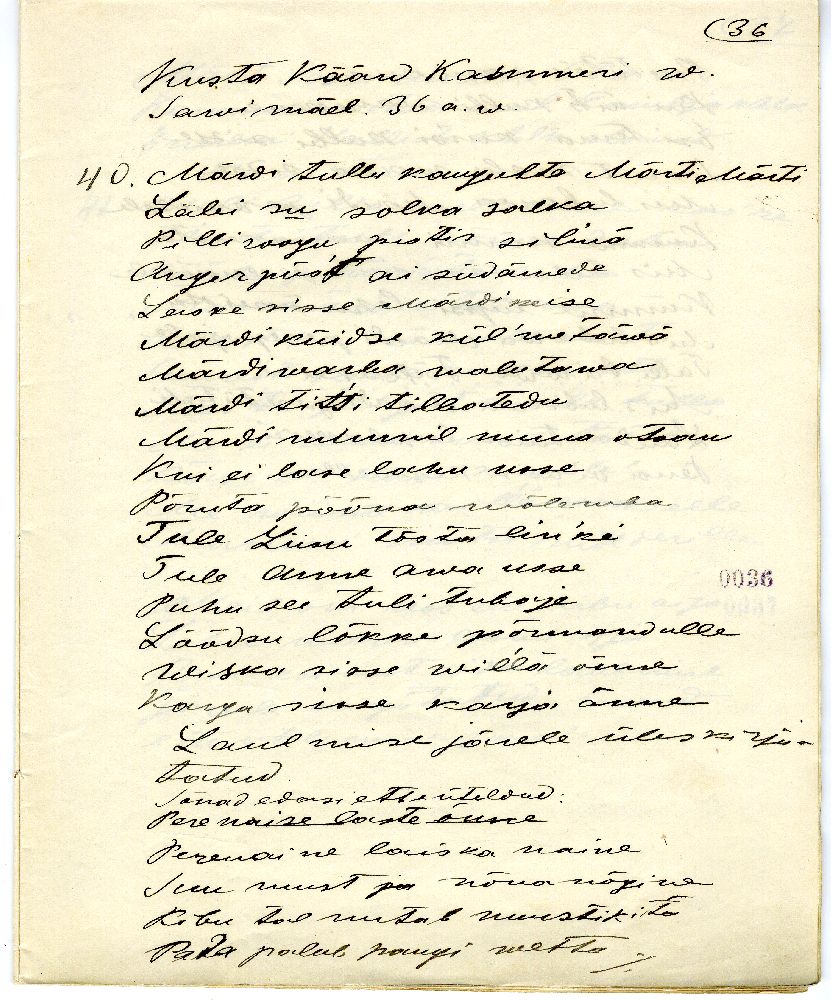 (36
Kusta Käärd Kammeri w.
Sarvimäel. 36 a. w.
40. Märdi tulle kaugulta Märti Märti
Läbi su solka salka
Pilliroogu piotis silmä
Anger püöt ai südämede
Laske sisse Märdi mise
Märdi küidse kül'metäwä
Märdi warba walutawa
Märdi titti tilbatedu
Märdi muna otsan
Kui ei lase lahu usse
Põruta põõna
Tule Liisu tõsta lin'ki
Tule Anne awa usse
Puhu see tuli tubaje
Löödsu lõkke põrmandulle
Wiska sisse willä õnne
Karga sisse karja õnne
Laulmise järele üleskirju-
tatud
Sõnad edasi etteüteldud:
Perenaise laste õnne
Perenaine laiska naine
Suu must ja nõna nõgine
Kibu tal mutab mustikita
Pada palub pangi wetta
0036